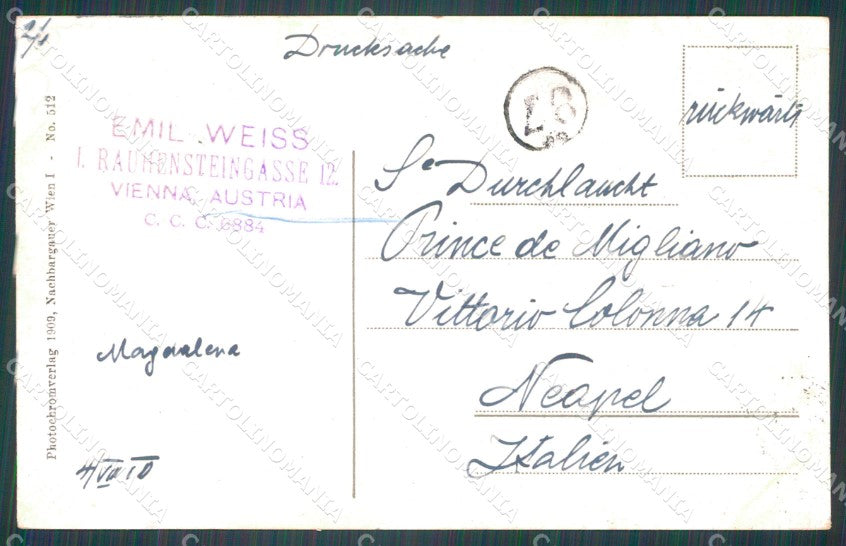 Drucksache
rückwärts
EMIL WEISS
I. RAUHENSTEINGASSE 12.
VIENNA, AUSTRIA
C. C. C. 6884
Se Durchlaucht
Prince de Migliano
Vittorio Colonna 14
Neapel
Italien
Magdalena
Photochromverlag 1909, Nachbargauer Wien I - No. 512
CARTOLINOMANIA